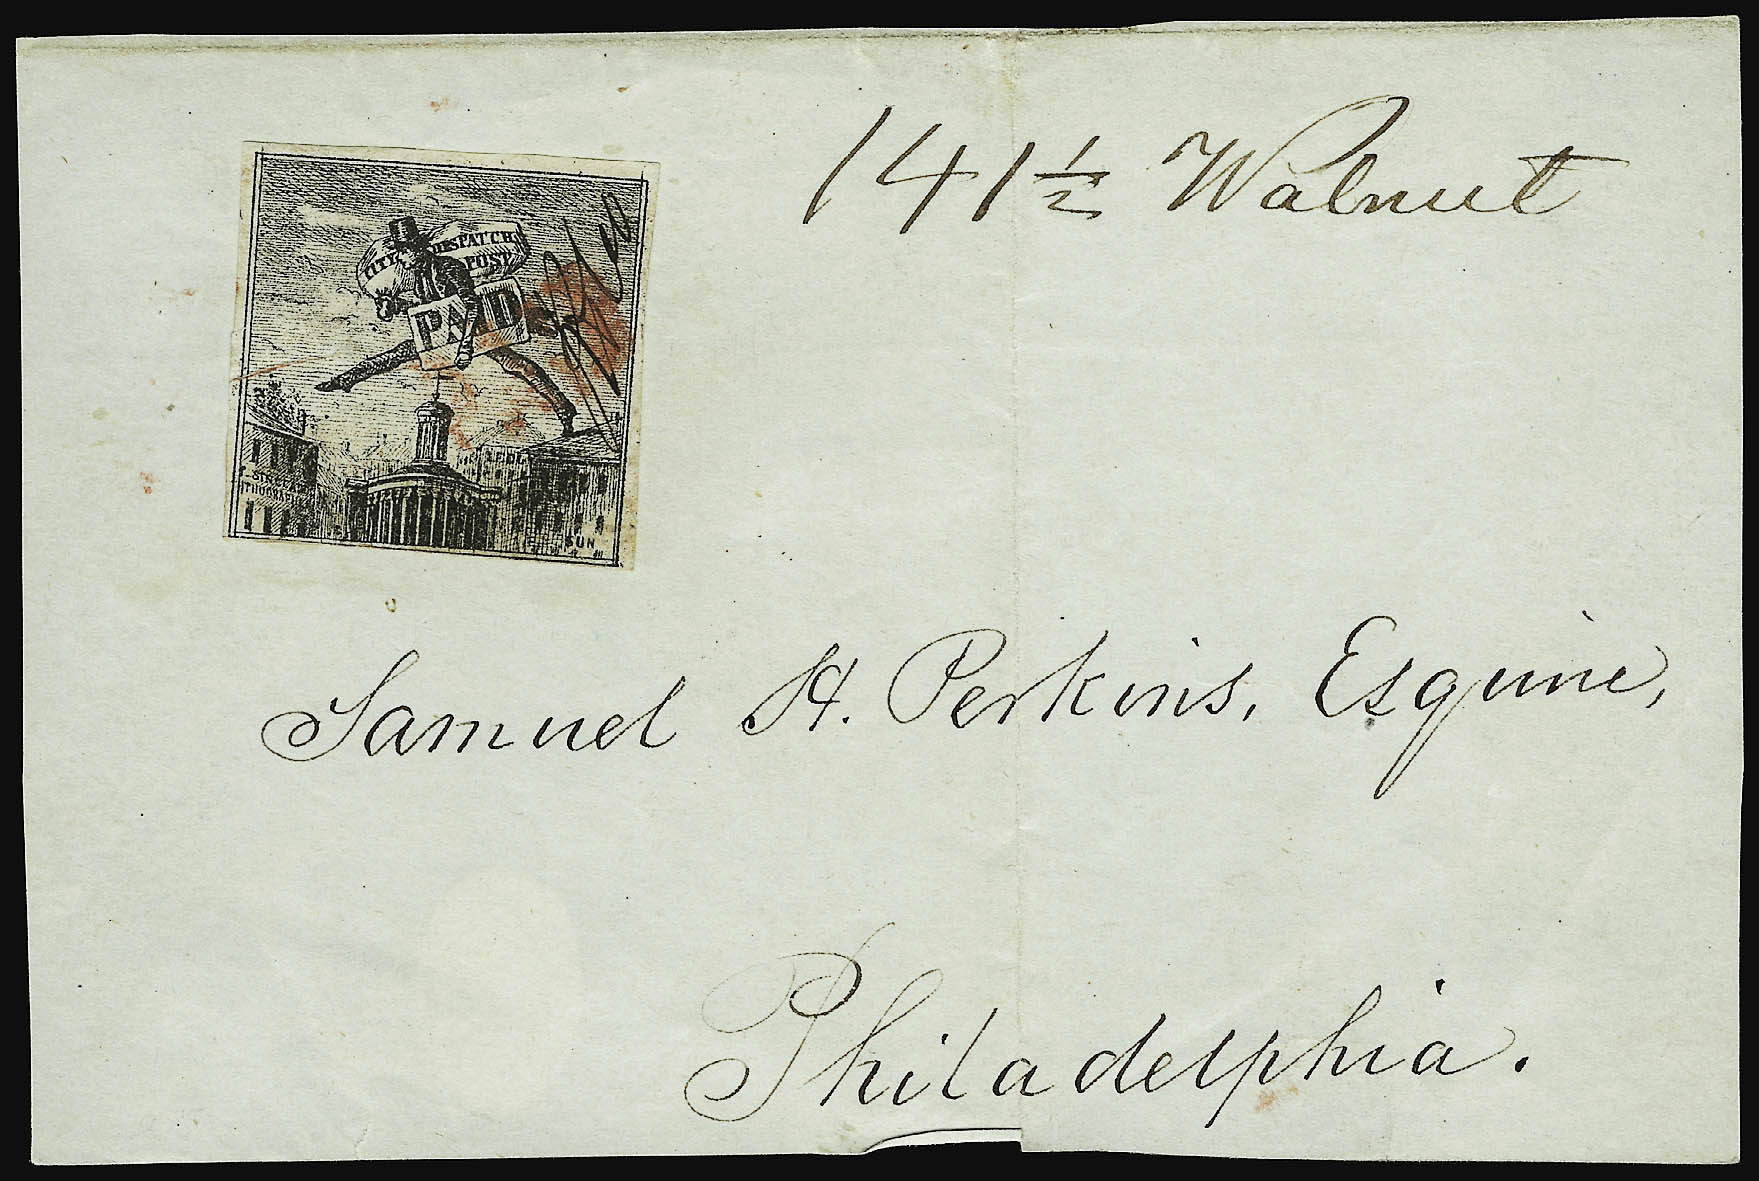 141 1/2 Walnut
CITY DESPATCH
POST
PAID
SUN
Samuel H. Perkins, Esquire,
Philadelphia.